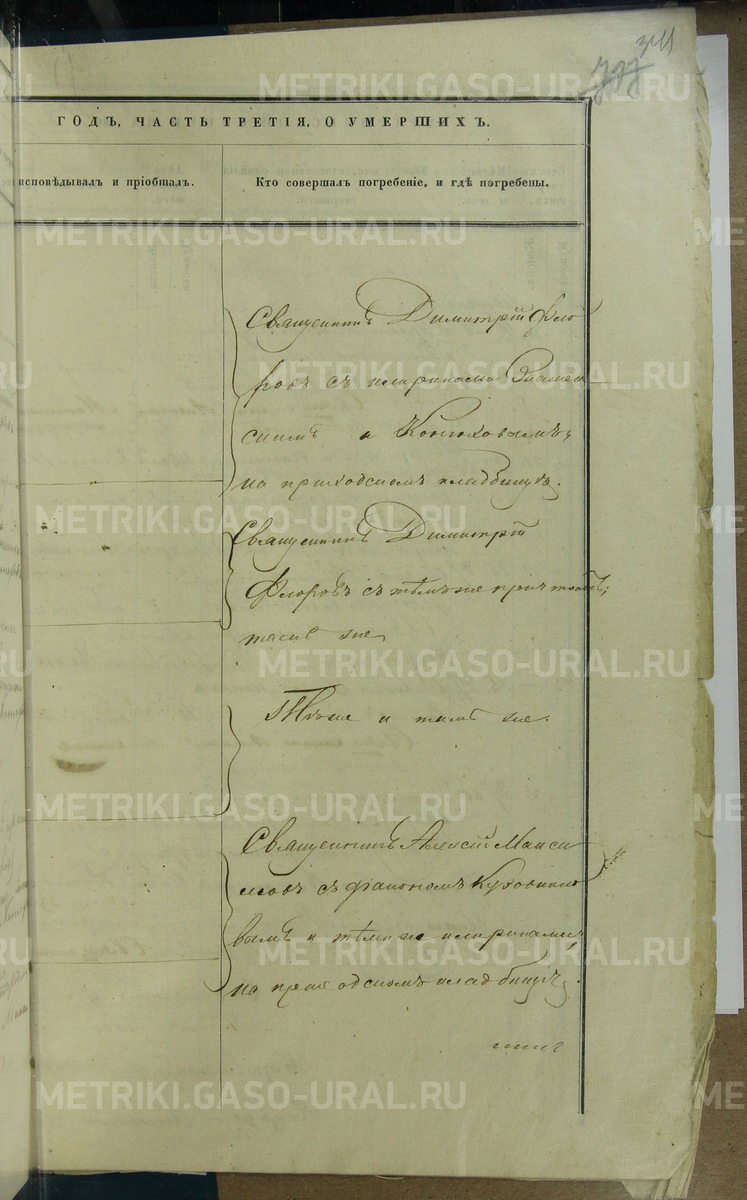 341
ГОДЪ, ЧАСТЬ ТРЕТІЯ, О УМЕРШИХЪ.
исповѣдывалъ и пріобщалъ.
Кто совершалъ погребеніе, и гдѣ погребены.
Священникъ Димитрій Фло
ровъ съ клириками Знамен
скимъ и Конюховымъ,
на приходскомъ кладбищѣ.
Священникъ Димитрій
Флоровъ съ тѣмъ же причтомъ,
тамъ же
Тѣже и тамъ же.
Священникъ Алексій Макси
мовъ съ діакономъ
вымъ и тѣми же клириками,
на приходскомъ кладбищѣ.
METRIKI.GASO-URAL.RU